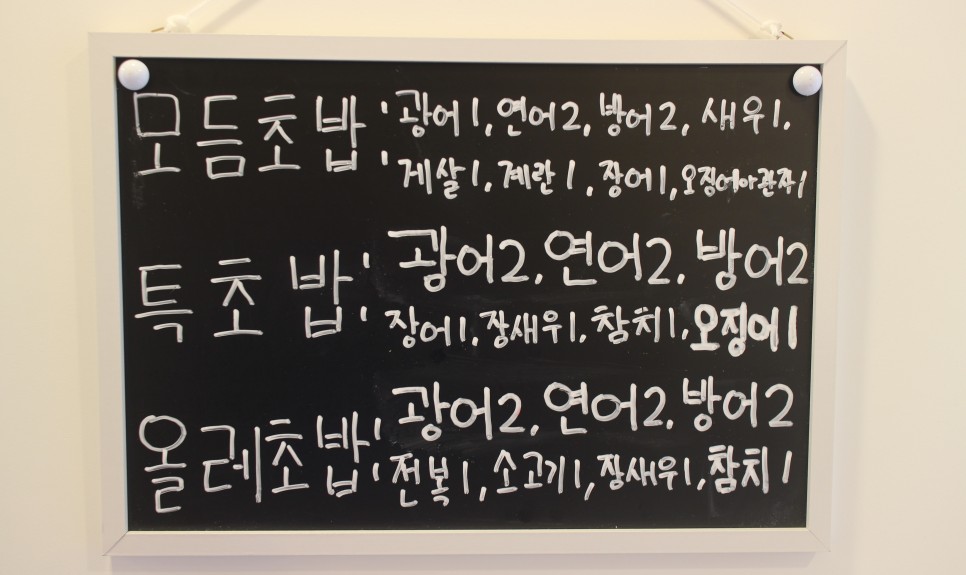 모듬초밥: 광어1, 연어2, 방어2, 새우1.
게살1, 계란1, 장어1, 오징어아관자1
특초밥: 광어2, 연어2, 방어2
장어1, 장새우1, 참치1, 오징어1
올레초밥: 광어2, 연어2, 방어2
전복1, 소고기1, 장새우1, 참치1